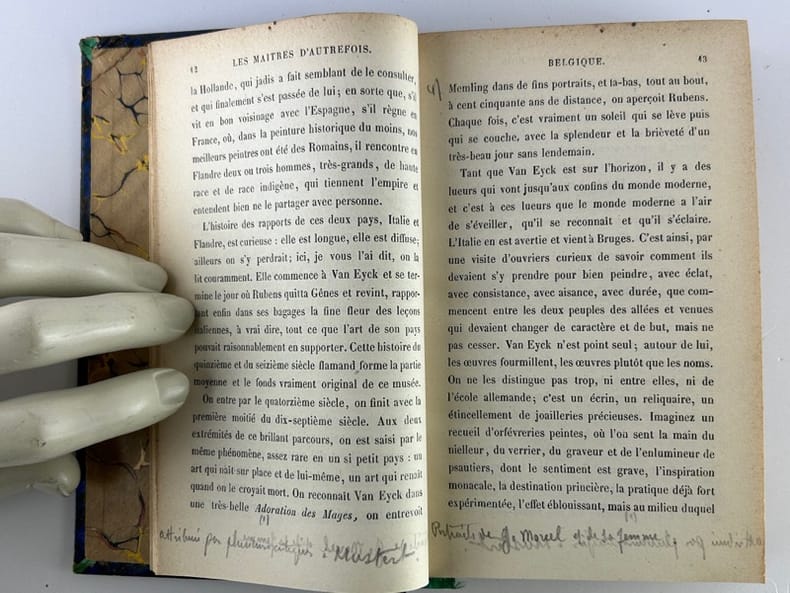 42 LES MAITRES D'AUTREFOIS.
la Hollande, qui jadis a fait semblant de le consulter,
et qui finalement s'est passée de lui; en sorte que, s'il
vit en bon voisinage avec l'Espagne, s'il règne en
France, où, dans la peinture historique du moins, nos
meilleurs peintres ont été des Romains, il rencontre en
Flandre deux ou trois hommes, très-grands, de haute
race et de race indigène, qui tiennent l'empire et
entendent bien ne le partager avec personne.
L'histoire des rapports de ces deux pays, Italie et
Flandre, est curieuse : elle est longue, elle est diffuse;
ailleurs on s'y perdrait; ici, je vous l'ai dit, on la
lit couramment. Elle commence à Van Eyck et se ter-
mine le jour où Rubens quitta Gênes et revint, rappor-
tant enfin dans ses bagages la fine fleur des leçons
italiennes, à vrai dire, tout ce que l'art de son pays
pouvait raisonnablement en supporter. Cette histoire du
quinzième et du seizième siècle flamand forme la partie
moyenne et le fonds vraiment original de ce musée.
On entre par le quatorzième siècle, on finit avec la
première moitié du dix-septième siècle. Aux deux
extrémités de ce brillant parcours, on est saisi par le
même phénomène, assez rare en un si petit pays : un
art qui naît sur place et de lui-même, un art qui renaît
quand on le croyait mort. On reconnaît Van Eyck dans
une très-belle Adoration des Mages, on entrevoit
(1)
attribué par
BELGIQUE. 43
Memling dans de fins portraits, et là-bas, tout au bout,
à cent cinquante ans de distance, on aperçoit Rubens.
Chaque fois, c'est vraiment un soleil qui se lève puis
qui se couche, avec la splendeur et la brièveté d'un
très-beau jour sans lendemain.
Tant que Van Eyck est sur l'horizon, il y a des
lueurs qui vont jusqu'aux confins du monde moderne,
et c'est à ces lueurs que le monde moderne a l'air
de s'éveiller, qu'il se reconnaît et qu'il s'éclaire.
L'Italie en est avertie et vient à Bruges. C'est ainsi, par
une visite d'ouvriers curieux de savoir comment ils
devaient s'y prendre pour bien peindre, avec éclat,
avec consistance, avec aisance, avec durée, que com-
mencent entre les deux peuples des allées et venues
qui devaient changer de caractère et de but, mais ne
pas cesser. Van Eyck n'est point seul; autour de lui,
les œuvres fourmillent, les œuvres plutôt que les noms.
On ne les distingue pas trop, ni entre elles, ni de
l'école allemande; c'est un écrin, un reliquaire, un
étincellement de joailleries précieuses. Imaginez un
recueil d'orfévreries peintes, où l'on sent la main du
nielleur, du verrier, du graveur et de l'enlumineur de
psautiers, dont le sentiment est grave, l'inspiration
monacale, la destination princière, la pratique déjà fort
expérimentée, l'effet éblouissant, mais au milieu duquel
Portraits de G. Morcel et de sa femme